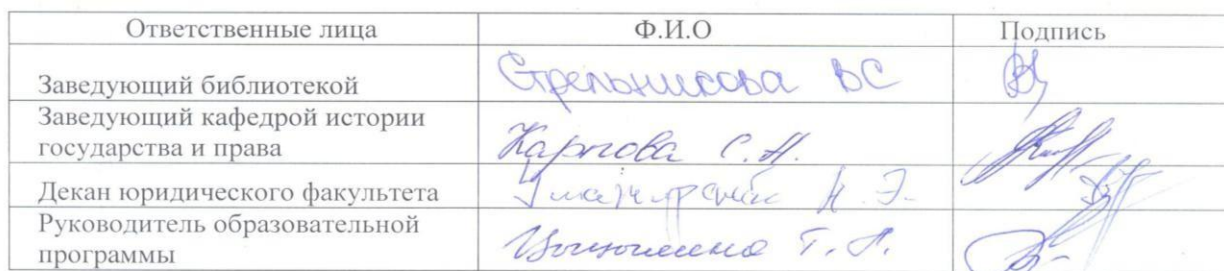 Ответственные лица Ф.И.О Подпись
Заведующий библиотекой Стрельникова ВС
Заведующий кафедрой истории
государства и права С.
Декан юридического факультета Э.
Руководитель образовательной
программы Т.